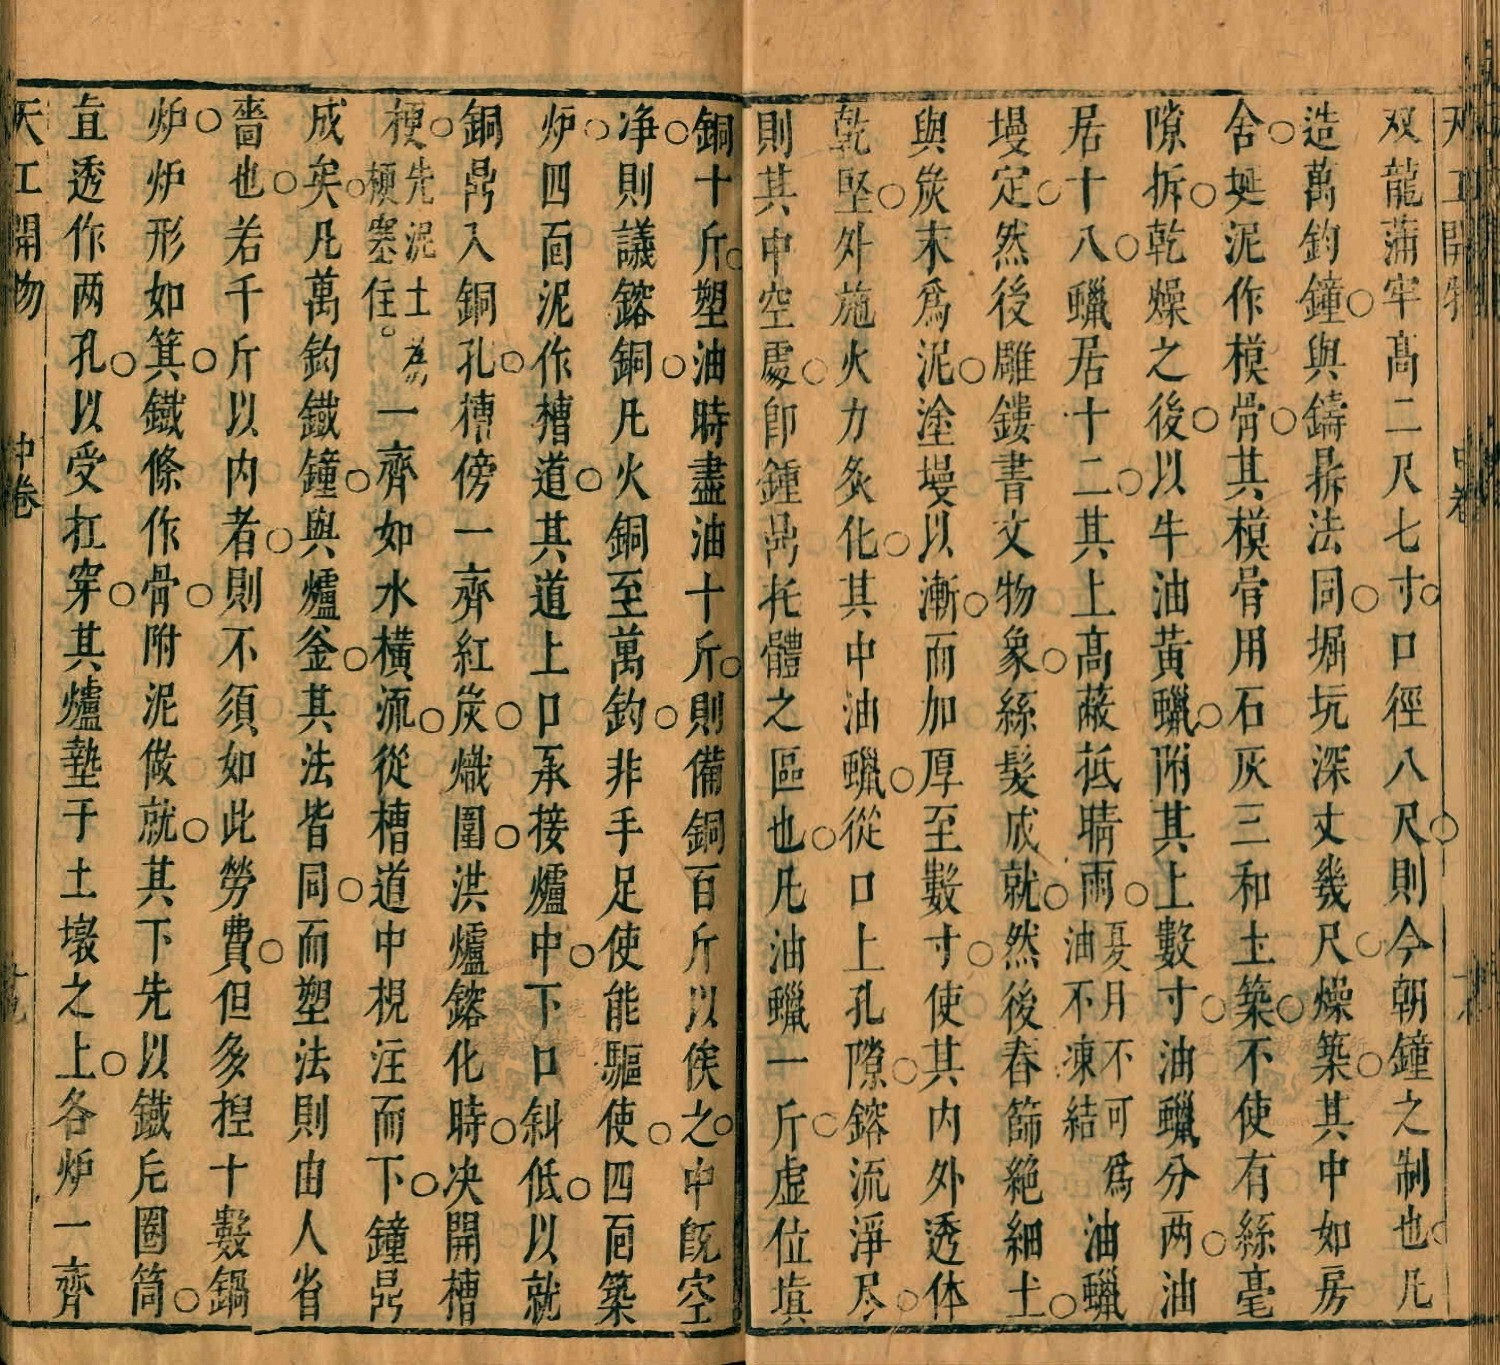 天工開物 中卷 十八
双龍蒲牢高二尺七寸口徑八尺則今朝鐘之制也凡
造萬鈞鐘與鑄鼎法同堀坑深丈幾尺燥築其中如房
舍埏泥作模骨其模骨用石灰三和土築不使有絲毫
隙拆乾燥之後以牛油黃蠟附其上數寸油蠟分两油
居十八蠟居十二其上高蔽抵晴雨夏月不可為油不凍結油蠟
墁定然後雕鏤書文物象絲髮成就然後舂篩絶細土
與炭末爲泥塗墁以漸而加厚至數寸使其内外透体
乾堅外施火力炙化其中油蠟從口上孔隙鎔流淨尽
則其中空處卽鍾鼎托體之區也凡油蠟一斤虛位填
銅十斤塑油時盡油十斤則備銅百斤以俟之中既空
净則議鎔銅凡火銅至萬鈞非手足使能驅使四面築
炉四面泥作槽道其道上口承接爐中下口斜低以就
銅鼎入銅孔槽傍一齊紅炭熾圍洪爐鎔化時决開槽
梗先泥土為梗塞住。一齊如水橫流從槽道中梘注而下鐘鼎
成矣凡萬鈞鐵鐘與爐釜其法皆同而塑法則由人省
嗇也若千斤以内者則不須如此勞費但多揑十數鍋
炉炉形如箕鐵條作骨附泥做就其下先以鐵片圈筒
直透作两孔以受杠穿其爐墊于土墩之上各炉一齊
天工開物 中卷 十九